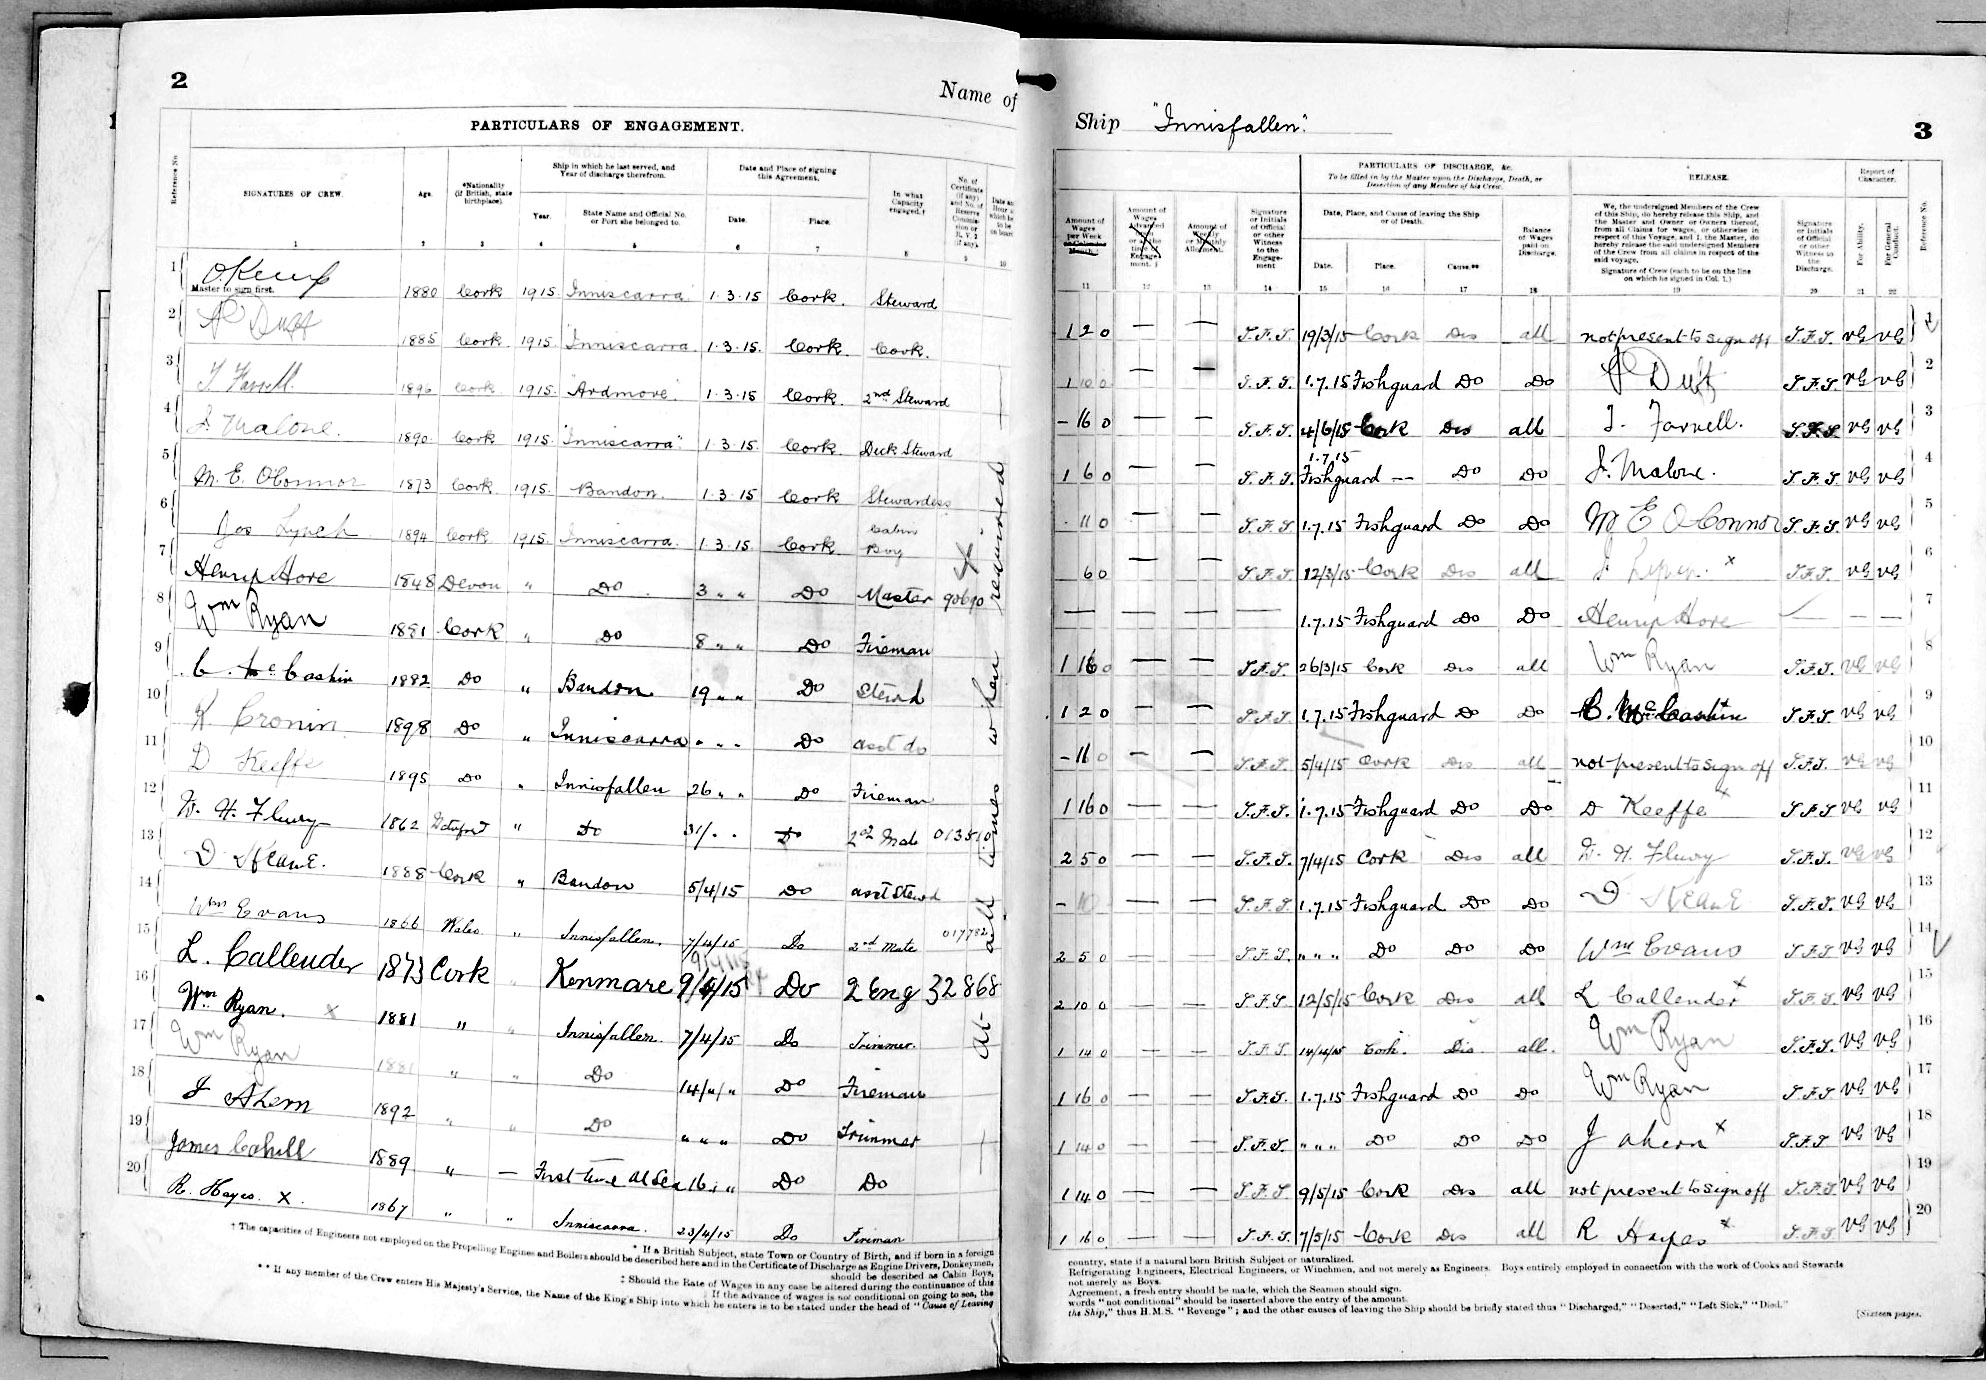 2
Name of
PARTICULARS OF ENGAGEMENT.
Reference No.
SIGNATURES OF CREW.
Age.
*Nationality (if British, state birthplace).
Ship in which he last served, and Year of discharge therefrom.
Year.
State Name and Official No. or Port she belonged to.
Date and Place of signing this Agreement.
Date.
Place.
In what Capacity engaged.†
No. of Certificate (if any) and No. of Reserve Commission or R.V. 2 (if any).
1 2 3 4 5 6 7 8 9 10
Master to sign first.
1 1880 Cork 1915 "Inniscarra" 1.3.15 Cork. Steward
2 P Duff 1885 Cork 1915 "Inniscarra 1.3.15. Cork Cook.
3 T Farrell. 1896 Cork 1915. "Ardmore". 1.3.15 Cork. 2nd Steward
4 J. Malone. 1890 Cork 1915. "Inniscarra" 1.3.15 Cork. Deck Steward
5 M. E. O'Connor 1873 Cork 1915. Bandon. 1.3.15 Cork Stewardess
6 Jos Lynch 1894 Cork 1915. Inniscarra. 1.3.15 Cork Cabin Boy
7 Henry Hore 1848 Devon " Do. 3 " " Do Master 90690
8 Wm Ryan 1881 Cork " Do 8 " " Do Fireman
9 C. McCashin 1882 Do " Bandon 19 " " Do Steward
10 K Cronin 1898 Do " Inniscarra " " " Do asst do
11 D Keeffe 1895 Do " Innisfallen 26 " " Do Fireman
12 W. H. Flury 1862 " Do 31/ " " Do 2nd Mate 013510
13 D KEANE. 1888 Cork " Bandon 5/4/15 Do asst Stewd
14 Wm Evans 1866 Wales " Innisfallen. 7/4/15 Do 2nd Mate 017782
15 L. Callender 1873 Cork " Kenmare 9/4/15 Do 2 Eng 32868
16 Wm Ryan. x 1881 " " Innisfallen. 7/4/15 Do Trimmer.
17 Wm Ryan 1881 " " Do 14/"/" Do Fireman
18 J Ahern 1892 " " Do " " " Do Trimmer
19 James Cahill 1889 " — First time at Sea 16 " " Do Do
20 R. Hayes. x. 1867 " " Inniscarra. 23/4/15 Do Fireman
At all times when required
† The capacities of Engineers not employed on the Propelling Engines and Boilers should be described here and in the Certificate of Discharge as Engine Drivers, Donkeymen,
* If a British Subject, state Town or Country of Birth, and if born in a foreign
should be described as Cabin Boys,
‡ Should the Rate of Wages in any case be altered during the continuance of this
If the advance of wages is not conditional on going to sea, the
** If any member of the Crew enters His Majesty's Service, the Name of the King's Ship into which he enters is to be stated under the head of "Cause of Leaving
Ship "Innisfallen".
3
Amount of Wages per Week or Calendar Month.
Amount of Wages Advanced upon or at the time of Engagement.‡
Amount of Weekly or Monthly Allotment.
Signature or Initials of Official or other Witness to the Engagement
PARTICULARS OF DISCHARGE, &c.
To be filled in by the Master upon the Discharge, Death, or Desertion of any Member of his Crew.
Date, Place, and Cause of leaving the Ship or of Death.
Date.
Place.
Cause.**
Balance of Wages paid on Discharge.
RELEASE.
We, the undersigned Members of the Crew of this Ship, do hereby release this Ship, and the Master and Owner or Owners thereof, from all Claims for wages, or otherwise in respect of this Voyage, and I, the Master, do hereby release the said undersigned Members of the Crew from all claims in respect of the said voyage.
Signature of Crew (each to be on the line on which he signed in Col. 1.)
Signature or Initials of Official or other Witness to the Discharge.
Report of Character.
For Ability.
For General Conduct.
Reference No.
11 12 13 14 15 16 17 18 19 20 21 22
1 2 0 — — S.F.S. 19/3/15 Cork Dis all not present to sign off S.F.S. VG VG 1
1 10 0 — — S.F.S. 1.7.15 Fishguard Do Do P Duff S.F.S. VG VG 2
- 16 0 — — S.F.S. 4/6/15 Cork Dis all T. Farrell. S.F.S. VG VG 3
1 6 0 — — S.F.S. 1.7.15 Fishguard — Do Do J. Malone. S.F.S. VG VG 4
. 11 0 — — S.F.S. 1.7.15 Fishguard Do Do M E O'Connor S.F.S VG VG 5
6 0 — — S.F.S. 12/3/15 Cork Dis all J Lynch x S.F.S. VG VG 6
— — — — 1.7.15 Fishguard Do Do Henry Hore — — 7
1 16 0 — — S.F.S. 26/3/15 Cork Dis all Wm Ryan S.F.S. VG VG 8
1 2 0 — — S.F.S 1.7.15 Fishguard Do Do C. McCashin S.F.S VG VG 9
- 16 0 — — S.F.S. 5/4/15 Cork Dis all not present to sign off S.F.S. VG VG 10
1 16 0 — — S.F.S. 1.7.15 Fishguard Do Do D Keeffe x S.F.S VG VG 11
2 5 0 — — S.F.S. 7/4/15 Cork Dis all W. H. Flury S.F.S. VG VG 12
- 10 — — S.F.S. 1.7.15 Fishguard Do Do D KEANE S.F.S. VG VG 13
2 5 0 — — S.F.S. " " " Do Do Do Wm Evans S.F.S VG VG 14
2 10 0 — — S.F.S 12/5/15 Cork Dis all L Callender x S.F.S VG VG 15
1 14 0 — — S.F.S 14/4/15 Cork. Dis all. Wm Ryan S.F.S. VG VG 16
1 16 0 — — S.F.S. 1.7.15 Fishguard Do Do Wm Ryan S.F.S. VG VG 17
1 14 0 — — S.F.S. " " " Do Do Do J ahern x S.F.S VG VG 18
1 14 0 — — S.F.S 9/5/15 Cork Dis all not present to sign off S.F.S VG VG 19
1 16 0 — — S.F.S 7/5/15 Cork Dis all R Hayes x S.F.S VG VG 20
country, state if a natural born British Subject or naturalized.
Refrigerating Engineers, Electrical Engineers, or Winchmen, and not merely as Engineers. Boys entirely employed in connection with the work of Cooks and Stewards
not merely as Boys.
Agreement, a fresh entry should be made, which the Seamen should sign.
words "not conditional" should be inserted above the entry of the amount.
the Ship," thus H.M.S. "Revenge"; and the other causes of leaving the Ship should be briefly stated thus "Discharged," "Deserted," "Left Sick," "Died."
[Sixteen pages.